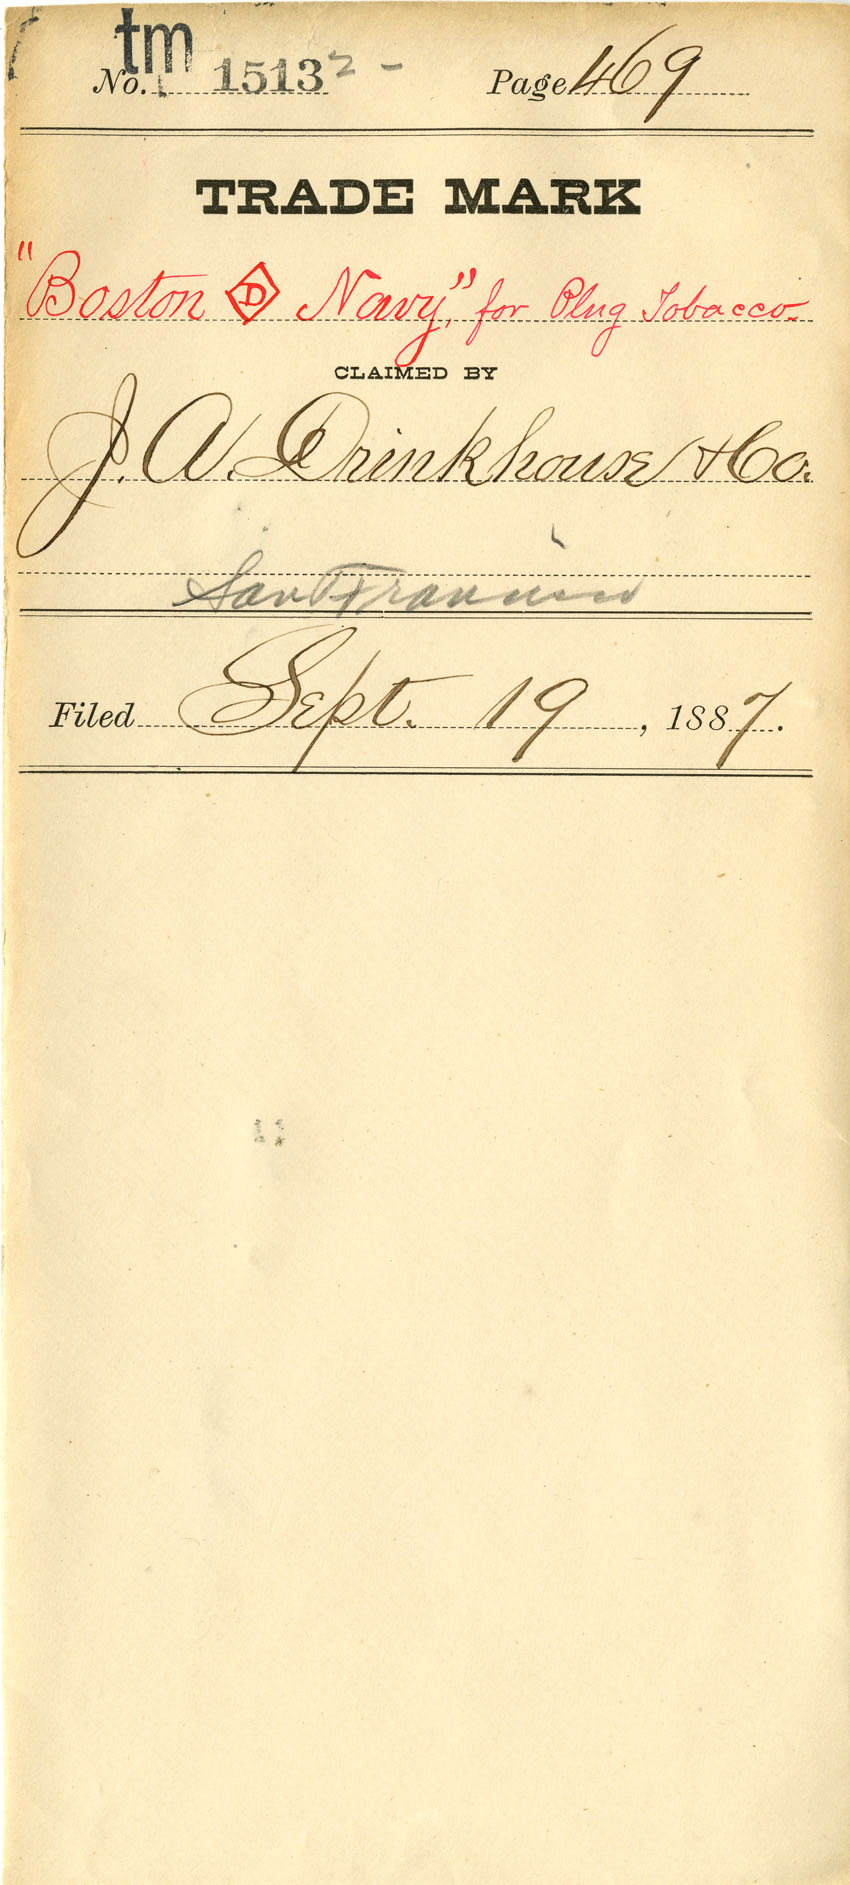 tm
No. 1513 2 - Page 469
TRADE MARK
"Boston D Navy", for Plug Tobacco.
CLAIMED BY
J. A. Drinkhouse & Co.
San Francisco
Filed Sept. 19, 1887.